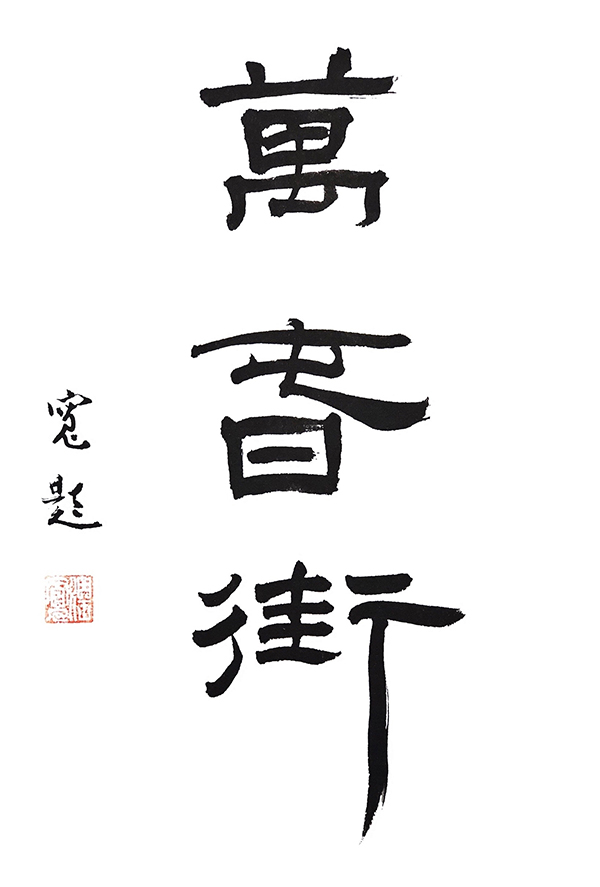 萬春街
寬題